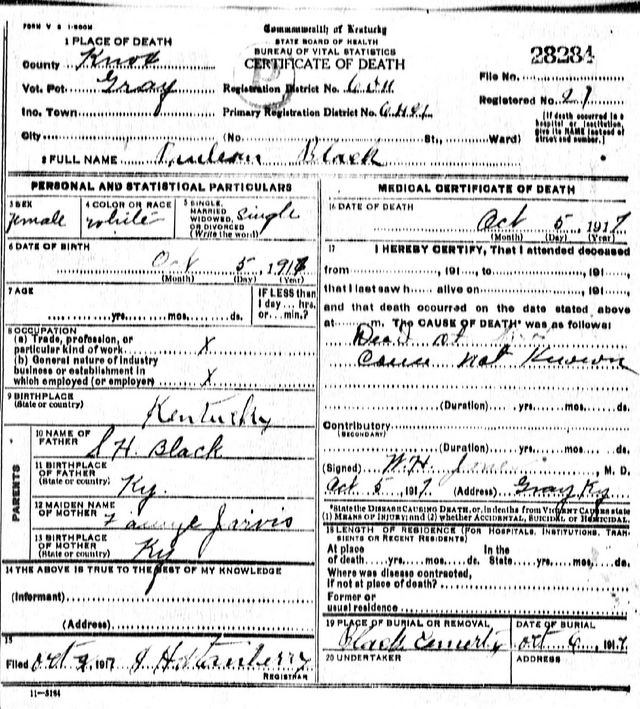 FORM V S 1-500M
Commonwealth of Kentucky
STATE BOARD OF HEALTH
BUREAU OF VITAL STATISTICS
CERTIFICATE OF DEATH
1 PLACE OF DEATH
County Knox
Vot. Pct. Gray
Ino. Town
City
Registration District No.
Primary Registration District No.
(No. St., Ward)
28284
File No.
Registered No. 27
[If death occurred in a
hospital or institution,
give its NAME instead of
street and number.]
2 FULL NAME Black
PERSONAL AND STATISTICAL PARTICULARS
3 SEX
female
4 COLOR OR RACE
white
5 SINGLE,
MARRIED
WIDOWED,
OR DIVORCED
(Write the word)
Single
6 DATE OF BIRTH
Oct 5, 1917
(Month) (Day) (Year)
7 AGE
yrs. mos. ds.
IF LESS than
1 day... hrs.
or... min.?
8 OCCUPATION
(a) Trade, profession, or
particular kind of work X
(b) General nature of industry
business or establishment in
which employed (or employer) X
9 BIRTHPLACE
(State or country)
Kentucky
PARENTS
10 NAME OF
FATHER
S H. Black
11 BIRTHPLACE
OF FATHER
(State or country)
Ky.
12 MAIDEN NAME
OF MOTHER
Jarvis
13 BIRTHPLACE
OF MOTHER
(State or country)
Ky
14 THE ABOVE IS TRUE TO THE BEST OF MY KNOWLEDGE
(Informant)
(Address)
15
Filed Oct 1917 J H
REGISTRAR
11-3184
MEDICAL CERTIFICATE OF DEATH
16 DATE OF DEATH
Oct 5, 1917
(Month) (Day) (Year)
17 I HEREBY CERTIFY, That I attended deceased
from, 191, to, 191,
that I last saw h alive on, 191,
and that death occurred on the date stated above
at m. The CAUSE OF DEATH* was as follows:
Dead at
Cause not Known
(Duration) yrs. mos. ds.
Contributory
(SECONDARY)
(Duration) yrs. mos. ds.
(Signed) W.H., M. D.
Oct 5, 1917. (Address) Gray Ky
*State the DISEASE CAUSING DEATH, or, in deaths from VIOLENT CAUSES state
(1) MEANS OF INJURY; and (2) whether ACCIDENTAL, SUICIDAL or HOMICIDAL.
18 LENGTH OF RESIDENCE (FOR HOSPITALS, INSTITUTIONS, TRAN-
SIENTS OR RECENT RESIDENTS)
At place In the
of death yrs. mos. ds. State yrs. mos. ds.
Where was disease contracted,
If not at place of death?
Former or
usual residence
19 PLACE OF BURIAL OR REMOVAL
Black
DATE OF BURIAL
Oct 6, 1917
20 UNDERTAKER
ADDRESS